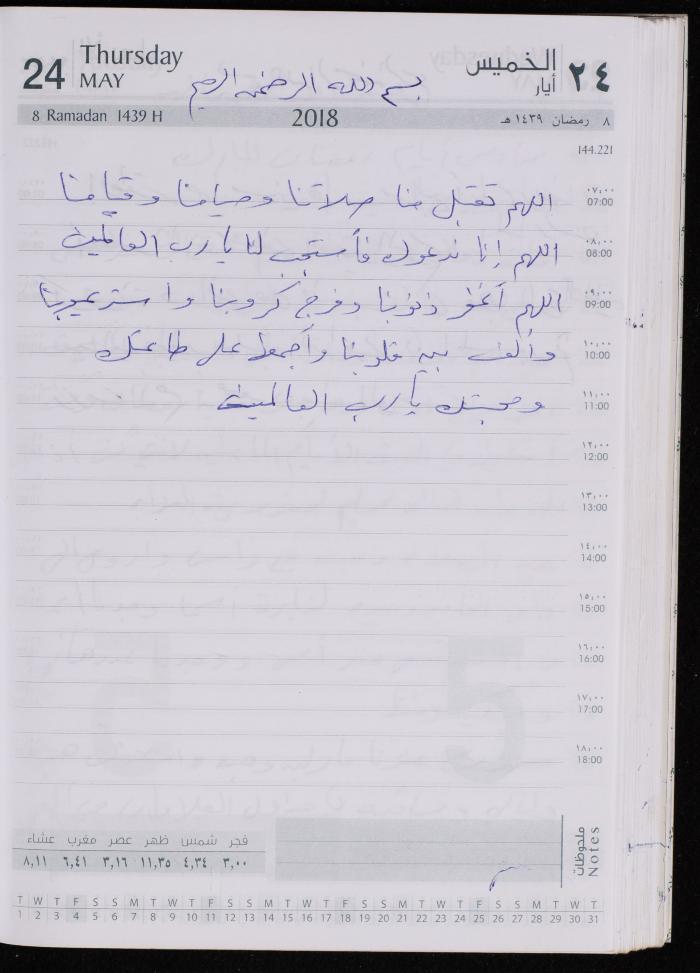 24 Thursday MAY
الخميس ٢٤ أيار
بسم الله الرحمن الرحيم
8 Ramadan 1439 H 2018 ٨ رمضان ١٤٣٩ هـ
144.221
٠٧,٠٠ 07:00 اللهم تقبل منا صلاتنا وصيامنا وقيامنا
٠٨,٠٠ 08:00 اللهم إنا ندعوك فأستجب لنا يا رب العالمين
٠٩,٠٠ 09:00 اللهم أغفر ذنوبنا وفرج كروبنا واستر عيوبنا
١٠,٠٠ 10:00 وألف بين قلوبنا وأجمعنا على طاعتك
١١,٠٠ 11:00 ومحبتك يا رب العالمين
١٢,٠٠ 12:00
١٣,٠٠ 13:00
١٤,٠٠ 14:00
١٥,٠٠ 15:00
١٦,٠٠ 16:00
١٧,٠٠ 17:00
١٨,٠٠ 18:00
فجر شمس ظهر عصر مغرب عشاء
٣,٠٠ ٤,٣٤ ١١,٣٥ ٣,١٦ ٦,٤١ ٨,١١
ملحوظات
Notes
T W T F S S M T W T F S S M T W T F S S M T W T F S S M T W T
1 2 3 4 5 6 7 8 9 10 11 12 13 14 15 16 17 18 19 20 21 22 23 24 25 26 27 28 29 30 31